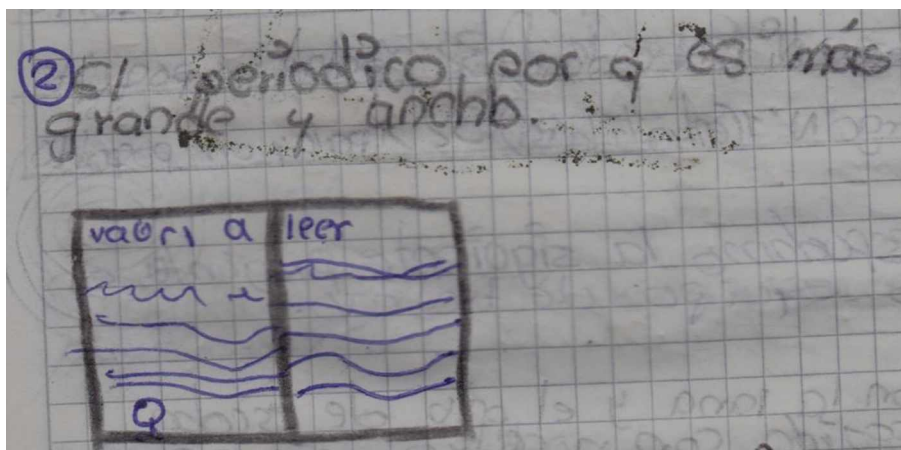 2 el periodico, por q es más
grande y ancho.
a leer
Q